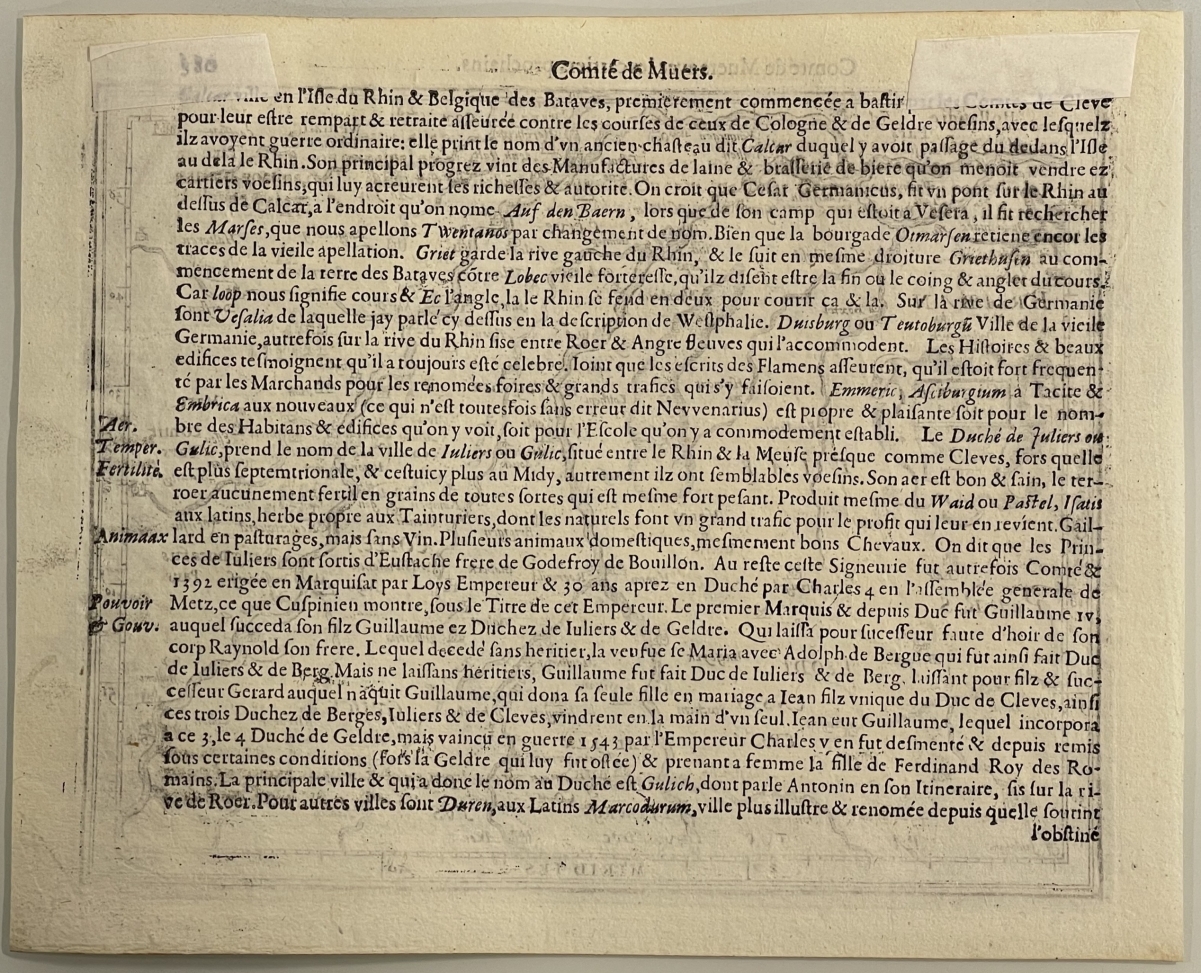 Comté de Muers.
Calcar ville en l'Isle du Rhin & Belgique des Bataves, premierement commencée a bastir Comtes de Cleve
pour leur estre rempart & retraite asseurée contre les courses de ceux de Cologne & de Geldre voesins, avec lesquelz
ilz avoyent guerre ordinaire: elle print le nom d'vn ancien chasteau dit Calcar duquel y avoit passage du dedans l'Isle
au dela le Rhin. Son principal progrez vint des Manufactures de laine & brasserie de biere qu'on menoit vendre ez
cartiers voesins, qui luy acreurent les richesses & autorite. On croit que Cesar Germanicus, fit vn pont sur le Rhin au
dessus de Calcar, a l'endroit qu'on nome Auf den Baern, lors que de son camp qui estoit a Vesera, il fit rechercher
les Marses, que nous apellons Twentanos par changement de nom. Bien que la bourgade Otmarsen retiene encor les
traces de la vieile apellation. Griet garde la rive gauche du Rhin, & le suit en mesme droiture Griethusen au com-
mencement de la terre des Bataves cõtre Lobec vieile forteresse, qu'ilz disent estre la fin ou le coing & anglet du cours.
Car loop nous signifie cours & Ec l'angle, la le Rhin se fend en deux pour courir ça & la. Sur la rive de Germanie
sont Vesalia de laquelle jay parlé cy dessus en la description de Westphalie. Duisburg ou Teutoburgũ Ville de la vieile
Germanie, autrefois sur la rive du Rhin sise entre Roer & Angre fleuves qui l'accommodent. Les Histoires & beaux
edifices tesmoignent qu'il a toujours esté celebre. Ioint que les escrits des Flamens asseurent, qu'il estoit fort frequen-
té par les Marchands pour les renomées foires & grands trafics qui s'y faisoient. Emmeric, Asciburgium a Tacite &
Embrica aux nouveaux (ce qui n'est toutesfois sans erreur dit Nevvenarius) est propre & plaisante soit pour le nom-
Aer. bre des Habitans & edifices qu'on y voit, soit pour l'Escole qu'on y a commodement establi. Le Duché de Juliers ou
Temper. Gulic, prend le nom de la ville de Iuliers ou Gulic, situé entre le Rhin & la Meuse presque comme Cleves, fors quelle
Fertilité. est plus septemtrionale, & cestuicy plus au Midy, autrement ilz ont semblables voesins. Son aer est bon & sain, le ter-
roer aucunement fertil en grains de toutes sortes qui est mesme fort pesant. Produit mesme du Waid ou Pastel, Isatis
aux latins, herbe propre aux Tainturiers, dont les naturels font vn grand trafic pour le profit qui leur en revient. Gail-
Animaax lard en pasturages, mais sans Vin. Plusieurs animaux domestiques, mesmement bons Chevaux. On dit que les Prin-
ces de Iuliers sont sortis d'Eustache frere de Godefroy de Bouillon. Au reste ceste Signeurie fut autrefois Comté &
1392 erigée en Marquisat par Loys Empereur & 30 ans aprez en Duché par Charles 4 en l'assemblée generale de
Pouvoir Metz, ce que Cuspinien montre, sous le Titre de cet Empereur. Le premier Marquis & depuis Duc fut Guillaume IV,
& Gouv. auquel succeda son filz Guillaume ez Duchez de Iuliers & de Geldre. Qui laissa pour sucesseur faute d'hoir de son
corp Raynold son frere. Lequel decedé sans heritier, la veufue se Maria avec Adolph de Bergue qui fut ainsi fait Duc
de Iuliers & de Berg. Mais ne laissans heritiers, Guillaume fut fait Duc de Iuliers & de Berg, laissant pour filz & suc-
cesseur Gerard auquel nâquit Guillaume, qui dona sa seule fille en mariage a Iean filz vnique du Duc de Cleves, ainsi
ces trois Duchez de Berges, Iuliers & de Cleves, vindrent en la main d'vn seul. Iean eur Guillaume, lequel incorpora
a ce 3, le 4 Duché de Geldre, mais vaincu en guerre 1543 par l'Empereur Charles v en fut desmenté & depuis remis
sous certaines conditions (fors la Geldre qui luy fut ostée) & prenant a femme la fille de Ferdinand Roy des Ro-
mains. La principale ville & qui a doné le nom au Duché est Gulich, dont parle Antonin en son Itineraire, sis sur la ri-
ve de Roer. Pour autres villes sont Duren, aux Latins Marcodurum, ville plus illustre & renomée depuis quelle soutint
l'obstiné